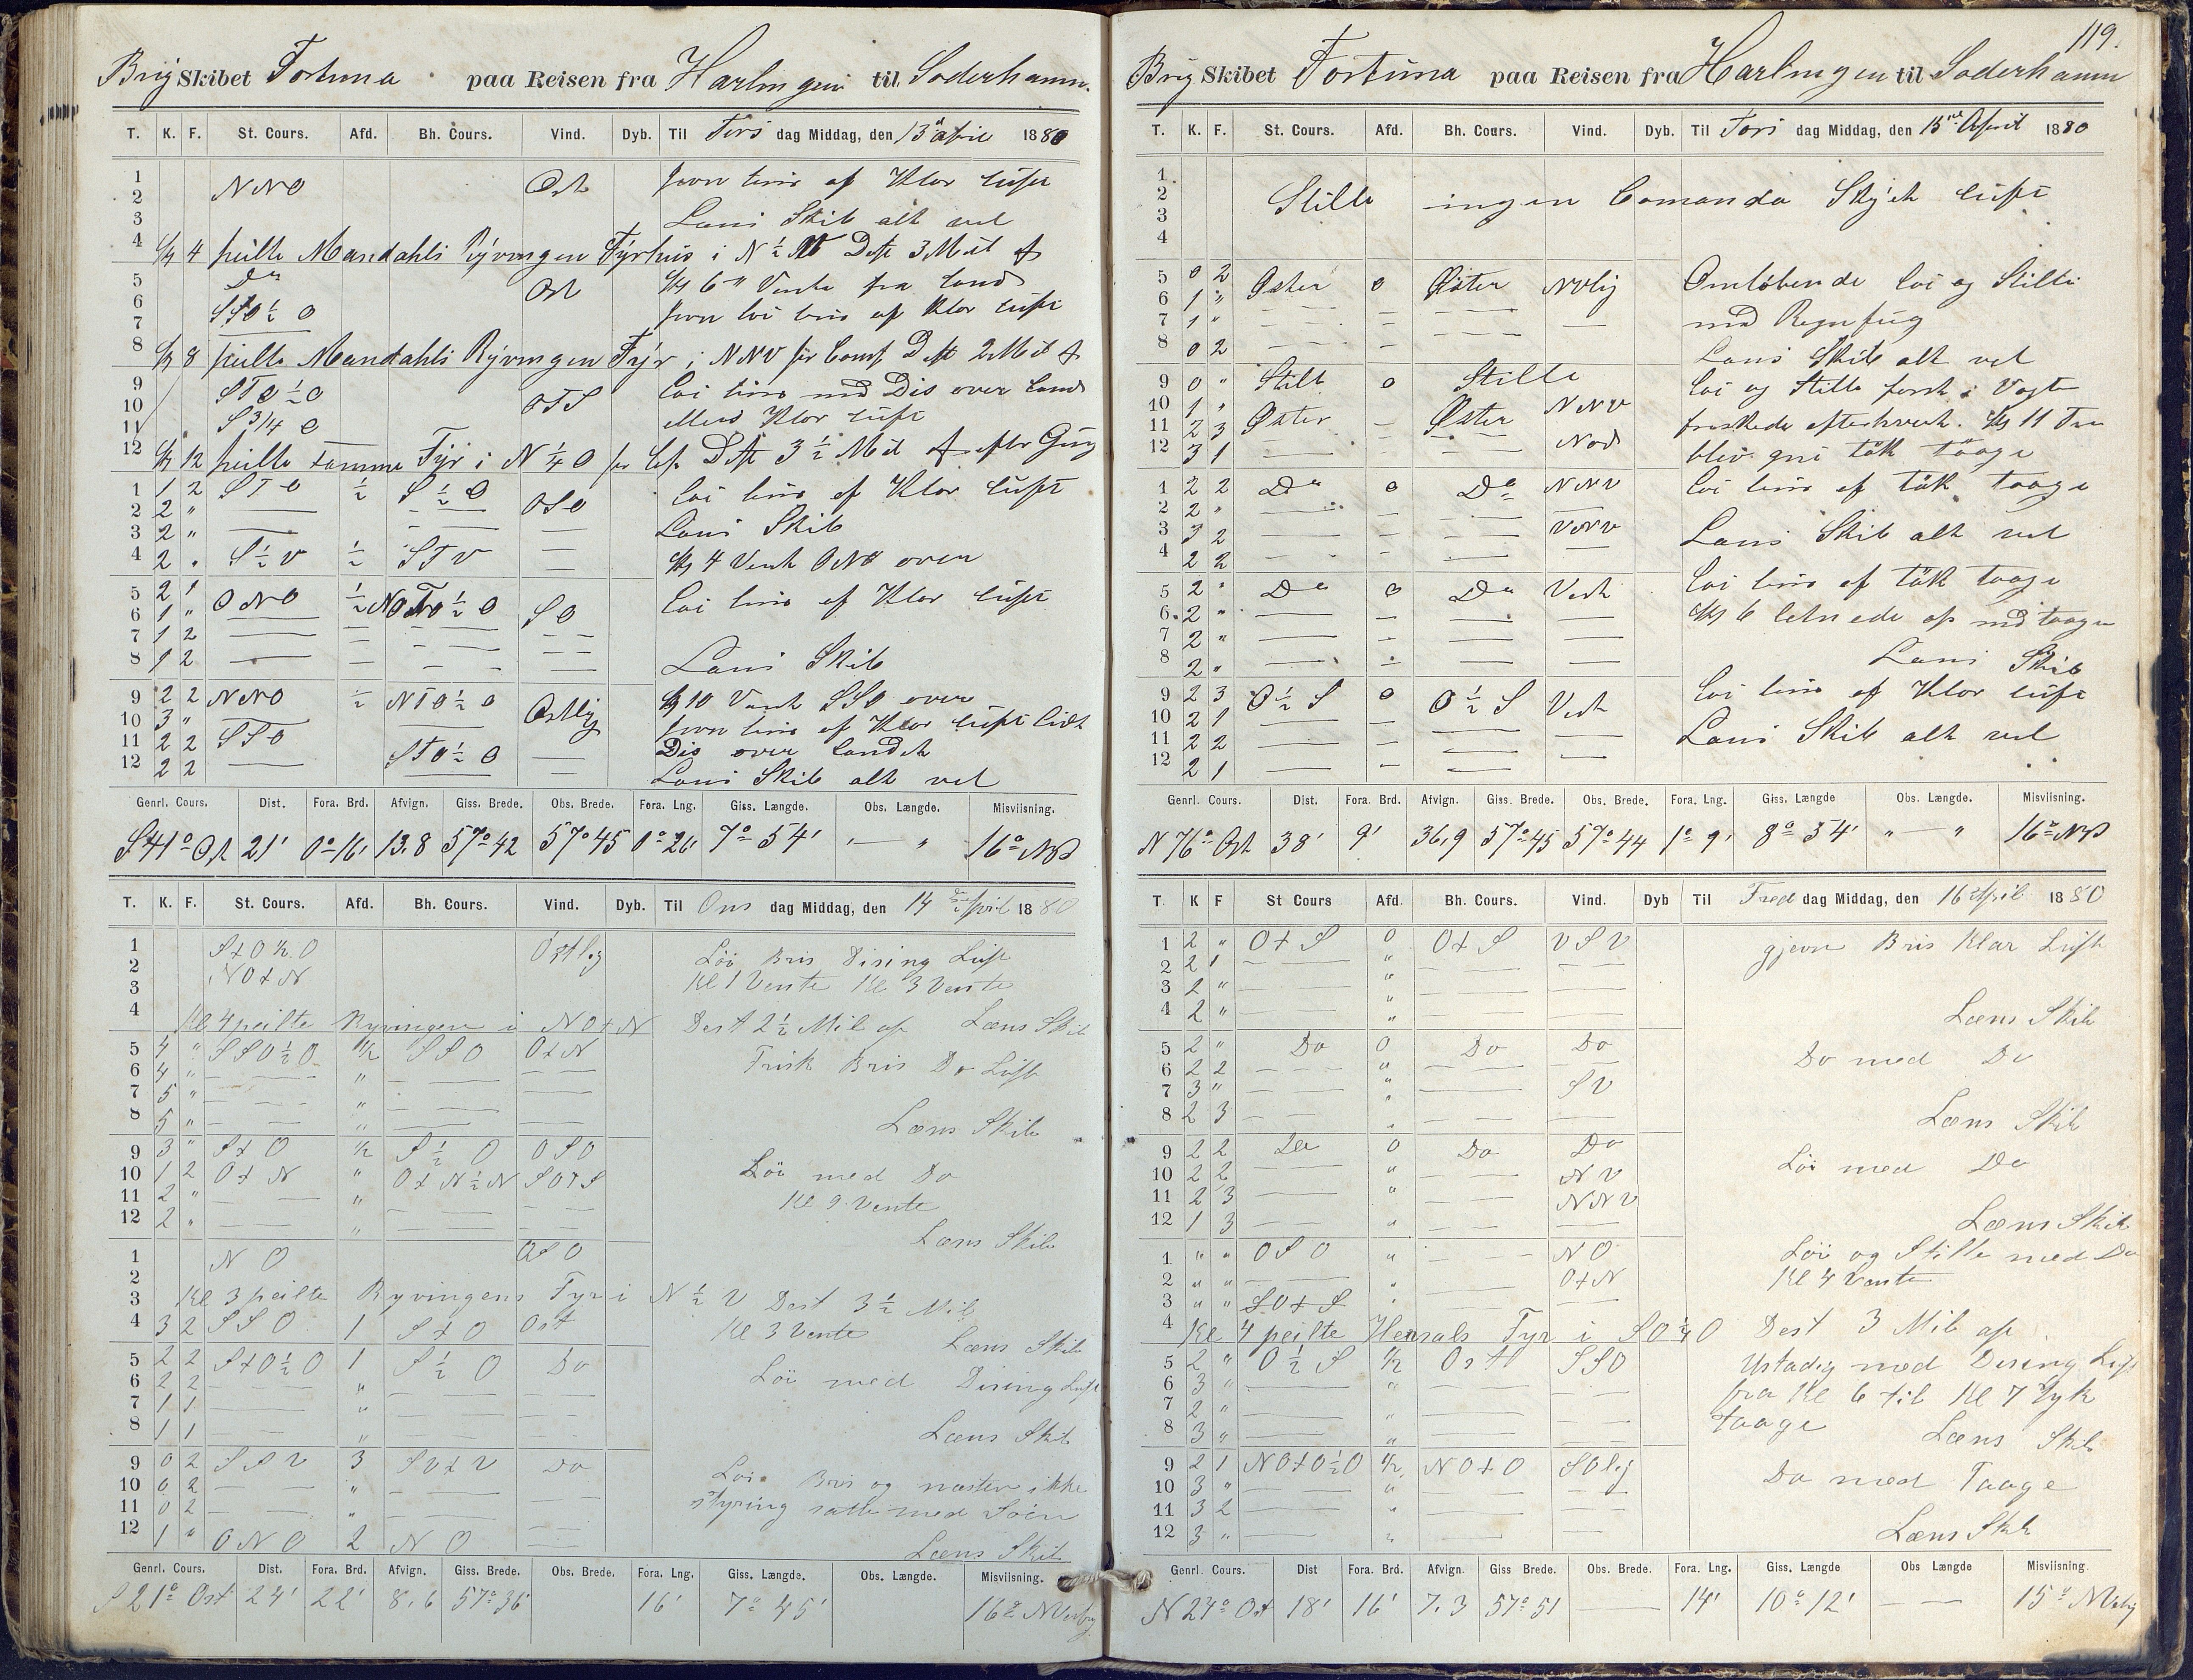 Brig Skibet Fortuna paa Reisen fra Harlingen til Soderhamn.
T. K. F. St. Cours. Afd. Bh. Cours. Vind. Dyb. Til Tirs dag Middag, den 13 april 1880
1 NNO Ost jevn bris af Klar luft
2
3 Lens Skib alt vel
4 Kl 4 peilte Mandahls Ryvingen Fyrhus i N ½ Dste 3 Mil af
5 Do Ost Kl 6 Vente fra Land
6 SSO ½ O jevn bris af Klar luft
7
8 Kl 8 peilte Mandahls Ryvingen Fyr i NNV pr Comp Dste 2 Mil af
9 STO ½ O OTS Loi bris med Dis over Land
10 S 3/4 O ellers Klar luft
11
12 Kl 12 peilte samme Fyr i N ¼ O pr Dste 3 ½ Mil af efter Gisng
1 1 2 STO ½ S ½ O OSO Loi bris af Klar luft
2 2 " — — Lens Skib
3 2 " — — —
4 2 " S ½ V ½ STV — Kl 4 Vent ONO over
5 2 1 ONO ½ NOTO ½ O SO Loi bris af Klar luft
6 1 " — — —
7 1 2 — — — —
8 1 2 — — — — Lens Skib
9 2 2 NNO ½ NTO ½ O Ostlig Kl 10 Vent SSO over
10 3 " — jevn bris af Klar luft lidt
11 2 2 SSO STO ½ O — Dis over Landet
12 2 2 — — — Lens Skib alt vel
Genrl. Cours. Dist. Fora. Brd. Afvign. Giss. Brede. Obs. Brede. Fora. Lng. Giss. Længde. Obs. Længde. Misviisning.
S 41° Ost 21' 0° 16' 13.8 57° 42 57° 45 0° 26' 7° 54' " — " 16° NV
T. K. F. St. Cours. Afd. Bh. Cours. Vind. Dyb. Til Ons dag Middag, den 14 April 1880
1 StO ½ O Ostlig Löi Bris Dising Luft
2 NOtN Kl 1 Vente Kl 3 Vente
3
4 Kl 4 peilte Ryvingen i NOtN Dest 2 ½ Mil af Læns Skib
5 4 " SSO ½ O ½ SSO OtN Frisk Bris Do Luft
6 4 " — " — —
7 5 " — " — —
8 5 " — " — — Læns Skib
9 3 " StO ½ S ½ O OSO
10 1 2 OtN " OtN ½ N SOTS Löi med Do
11 2 " — " — — Kl 9 Vente
12 2 " — " — — Læns Skib
1 NO OSO
2
3 Kl 3 peilte Ryvingens Fyr i N ½ V Dest 3 ½ Mil
4 3 2 SSO 1 StO Ost Kl 3 Vente Læns Skib
5 2 2 StO ½ O 1 S ½ O Do Löi med Dising Luft
6 2 2 — " — —
7 1 1 — " — —
8 1 1 — " — — Læns Skib
9 0 2 SSV 3 SVtV Do Löi Bris og næsten ikke
10 0 2 — " — — styring satte med Söen
11 0 2 — " — —
12 1 " ONO 2 NO — Læns Skib
Genrl. Cours. Dist. Fora. Brd. Afvign. Giss. Brede. Obs. Brede. Fora. Lng. Giss. Længde. Obs. Længde. Misviisning.
S 21° Ost 24' 22' 8,6 57° 36' 16' 7° 45' 16° NVestlig
119.
Brig Skibet Fortuna paa Reisen fra Harlingen til Soderhamn
T. K. F. St. Cours. Afd. Bh. Cours. Vind. Dyb. Til Tors dag Middag, den 15 April 1880
1
2 Stille ingen Comando Skyet luft
3
4
5 0 2 Öster 0 Öster NVlig Omlöbende Loi og Stille
6 1 " — — — med Regnfug
7 1 " — — — —
8 0 2 — — Lens Skib alt vel
9 0 " Stille 0 Stille Loi og Stille först i Vagten
10 1 " Öster — Öster NNV friskede efterhvert. Kl 11
11 2 3 — — — Nord blev gni tåk tåage
12 3 1 — —
1 2 2 Do 0 Do NNV Loi bris af tåk taage
2 2 " — — —
3 3 2 — — — VNV Lens Skib alt vel
4 2 2 — — — —
5 2 " Do 0 Do Vest Loi bris af tåk taage
6 2 " — — — — Kl 6 letnede op med taagen
7 2 " — — — —
8 2 " — — — — Lens Skib
9 2 3 O ½ S 0 O ½ S Vest Loi bris af Klar luft
10 2 1 — — —
11 2 2 — — — — Lens Skib alt vel
12 2 1 — — — —
Genrl. Cours. Dist. Fora. Brd. Afvign. Giss. Brede. Obs. Brede. Fora. Lng. Giss. Længde Obs. Længde. Misviisning.
N 76° Ost 38' 9' 36,9 57° 45 57° 44 1° 9' 8° 54' " — " 16° NV
T. K F St Cours Afd. Bh. Cours. Vind. Dyb Til Fred dag Middag, den 16 April 1880
1 2 " OtS 0 OtS VSV gjevn Bris Klar Luft
2 2 1 — " — —
3 2 " — " — —
4 2 " — " — — Læns Skib
5 2 " Do 0 Do Do Do med Do
6 2 2 — " — —
7 3 " — " — SV
8 2 3 — " — — Læns Skib
9 2 2 Do 0 Do Do Löi med Do
10 2 2 — " — NV
11 2 3 — " — NNV
12 1 3 — " — — Læns Skib
1 " " OSO " — NO Löi og Stille med Do
2 " " — " OtN Kl 4 Vente
3 " " SOtS " —
4 Kl 4 peilte Fyr i SO ½ O Dest 3 Mil af
5 2 " O ½ S ½ Ost SSO Ustadig med Dising Luft
6 3 " — " — — fra Kl 6 til Kl 7 Tyk
7 2 " — " — — taage
8 3 " — " — — Læns Skib
9 2 1 NOtO ½ O ½ NOtO SOlig Do med Taage
10 3 " — " — —
11 3 2 — " —
12 3 " — " — — Læns Skib
Genrl. Cours. Dist Fora. Brd. Afvign. Giss Brede. Obs. Brede. Fora. Lng. Giss. Længde Obs Længde Misviisning
N 24° Ost 18' 16' 7.3 57° 51 — 14' 10° 12' — — 15° NVstlig